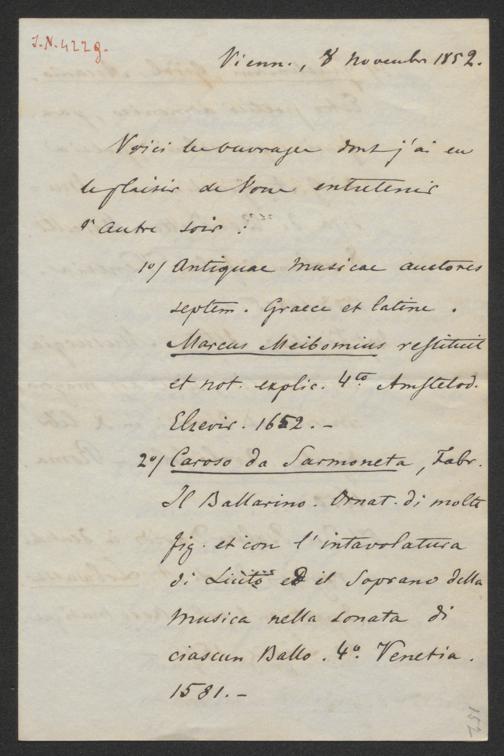 I.N. 4229.
Vienn., 8 Novembr 1852.
Voici les ouvrages dont j'ai eu
le plaisir de Vous entretenir
l'autre soir :
1o/ Antiquae musicae auctores
septem. Graece et latine.
Marcus Meibomius restituit
et not. explic. 4to Amstelod.
Elsevir. 1652. -
2o/ Caroso da Sarmoneta, Fabr.
Il Ballarino. Ornat. di molte
fig. et con l'intavolatura
di Liuto ed il Soprano della
musica nella sonata di
ciascun Ballo. 4o. Venetia.
1581. -
152